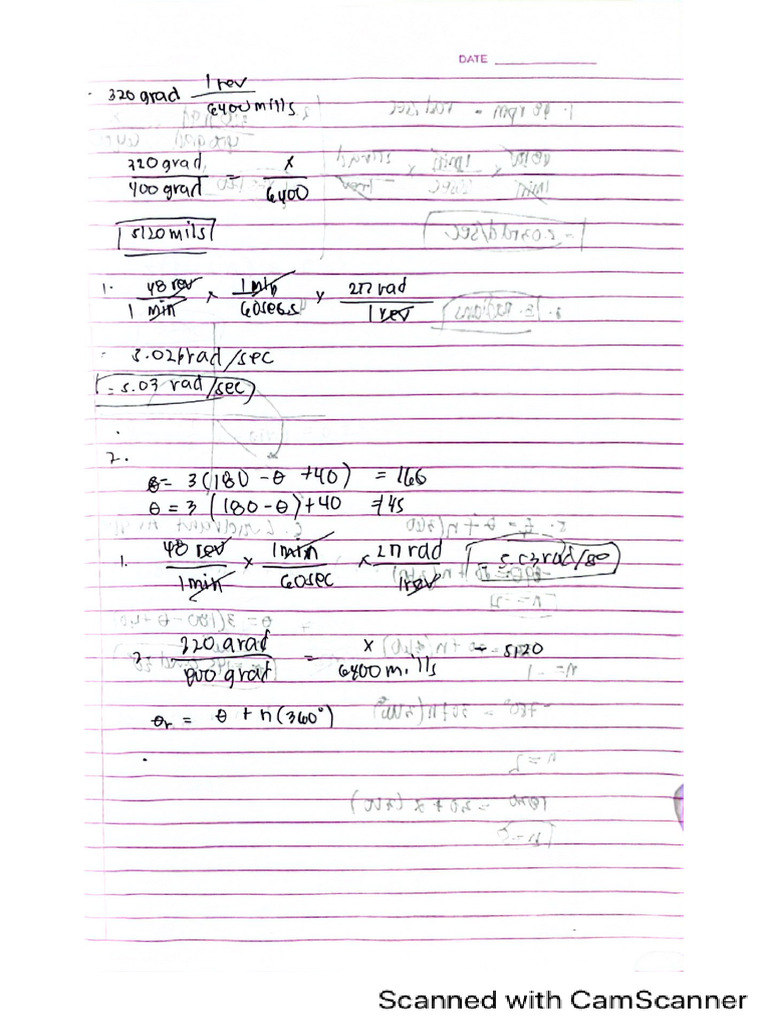 DATE
320 grad 1 rev / 6400 mills
320 grad / 400 grad = x / 6400
5120 mils
1. 48 rev / 1 min x 1 min / 60secs x 2π rad / 1 rev
= 5.026 rad/sec
= 5.03 rad/sec
2.
θ = 3(180 - θ + 40) = 166
θ = 3 (180 - θ) + 40 = 145
1. 48 rev / 1 min x 1 min / 60sec x 2π rad / 1 rev = 5.03rad/se
320 grad / 400 grad = x / 6400 mills = 5120
θr = θ + n(360°)
Scanned with CamScanner